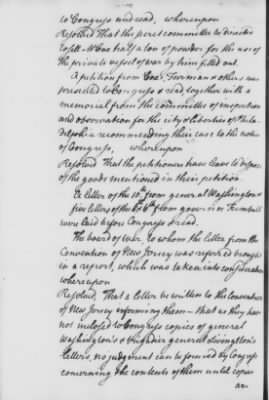 to Congress and read, whereupon
Resolved That the secret committee be directed
to sell Mr Coxe half a ton of powder for the use of
the private vessel of war by him fitted out
A petition from Coxe, Furman & others was
presented to Congress & read, together with a
memorial from the committee of inspection
and observation for the city & liberties of Phila
delphia recommending their case to the notice
of Congress, whereupon
Resolved That the petitioners have leave to dispose
of the goods mentioned in their petition
A letter of the 10th from general Washington &
five letters of the 6th from governor Trumbull
were laid before Congress & read.
The board of war to whom the letter from the
Convention of New Jersey was referred brought
in a report, which was taken into consideration
whereupon
Resolved, That a letter be written to the Convention
of New Jersey informing them that as they have
not inclosed to Congress copies of general
Washington's & brigadier general Livingston's
letters, no judgment can be formed by Congress
concerning the contents of them until copies
are